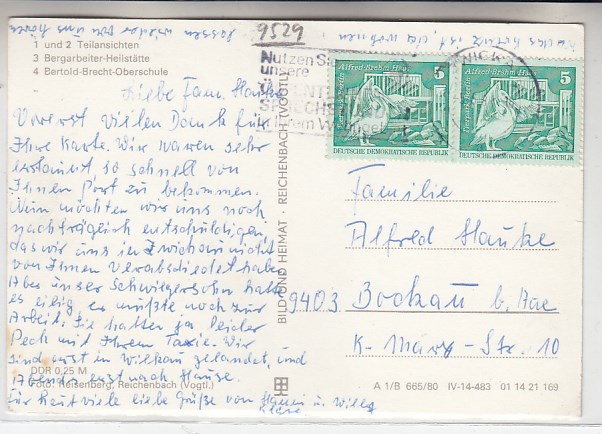 9529
lassen wieder von uns hören
1 und 2 Teilansichten
3 Bergarbeiter-Heilstätte
4 Bertold-Brecht-Oberschule
Liebe Fam. Hauke
Vorerst vielen Dank für
Ihre Karte. Wir waren sehr
erstaunt, so schnell von
Ihnen Post zu bekommen.
Nun möchten wir uns noch
nachträglich entschuldigen,
das wir uns in Zwickau nicht
von Ihnen verabschiedet haben
Aber unser Schwiegersohn hatte
es eilig, er mußte noch zur
Arbeit. Sie hatten ja leider
Pech mit Ihrem Taxie. Wir
sind erst in Wilkau gelandet, und
Abends erst nach Hause.
Für heut viele liebe Grüße von
u. Willy
DDR 0,25 M
Foto: Reisenberg, Reichenbach (Vogtl.)
BILD UND HEIMAT · REICHENBACH (VOGTL)
Nutzen Sie
unsere
Tierpark Berlin
Alfred-Brehm-Haus
5
DEUTSCHE DEMOKRATISCHE REPUBLIK
Tierpark Berlin
Alfred-Brehm-Haus
5
DEUTSCHE DEMOKRATISCHE REPUBLIK
Familie
Alfred Hauke
9403 Bockau b. Aue
K.-Marx-Str. 10
A 1/B 665/80 IV-14-483 01 14 21 169